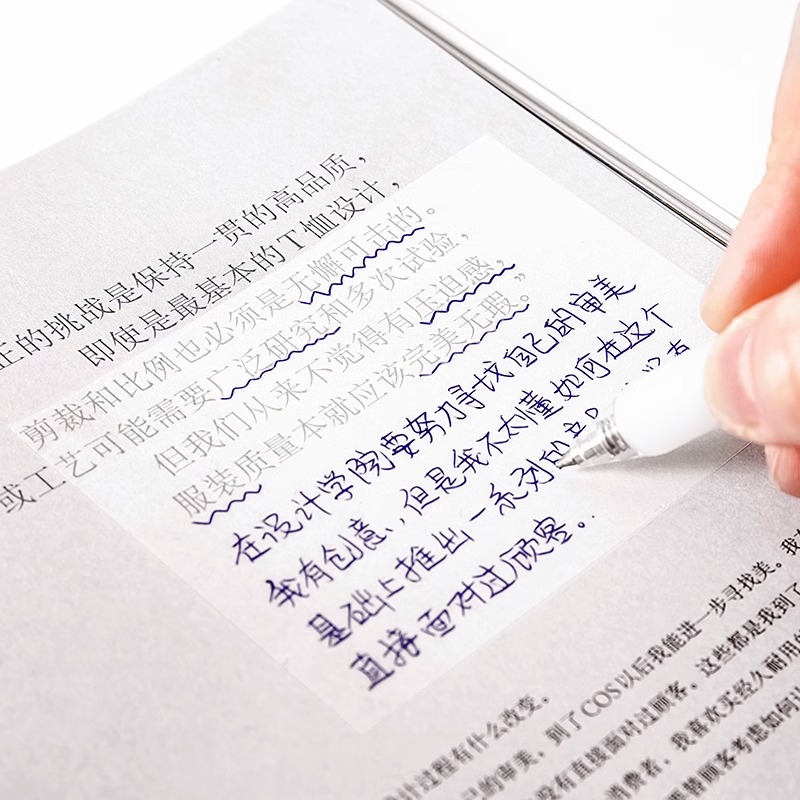 正的挑战是保持一贯的高品质,
即使是最基本的T恤设计,
剪裁和比例也必须是无懈可击的。
或工艺可能需要广泛研究和多次试验,
但我们从来不觉得有压迫感,
服装质量本就应该完美无瑕。
在设计学院要努力寻找自己的审美
我有创意,但是我不太懂如何在这个
基础上推出一系列
直接面对过顾客。
计过程有什么改变。
己的审美,到了COS以后我能进一步寻找美。我
没有直接面对过顾客,这些都是我到了
消费者,我喜欢买经久耐用
顾客考虑如何